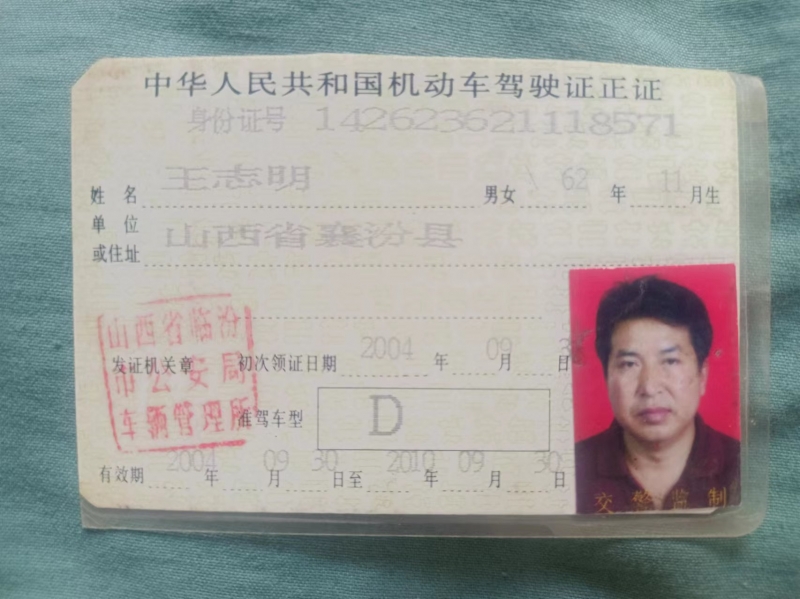 中华人民共和国机动车驾驶证正证
身份证号 142623621118571
姓名 王志明 男女 62 年 11 月生
单位
或住址 山西省襄汾县
山西省临汾
市公安局
车辆管理所
发证机关章 初次领证日期 2004 年 09 月 30 日
准驾车型 D
有效期 2004 年 09 月 30 日至 2010 年 09 月 30 日
交警监制